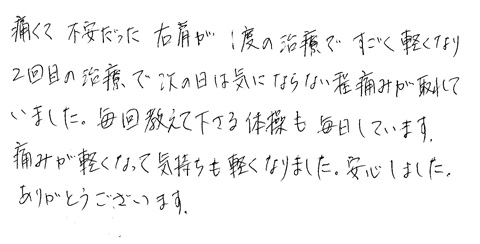 痛くて 不安だった 右肩が 1度の治療で すごく軽くなり
2回目の治療で次の日は気にならない程痛みが取れて
いました。毎回教えて下さる体操も毎日しています。
痛みが軽くなって気持ちも軽くなりました。安心しました。
ありがとうございます。